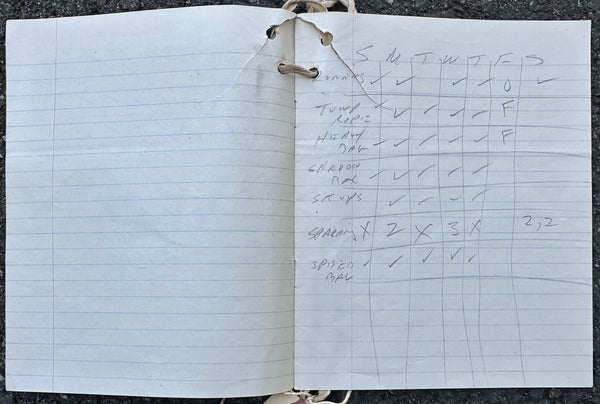 S M T W T F S
RUNNING ✓ ✓ ✓ ✓ O ✓
JUMP ✓ ✓ ✓ ✓ ✓ F
ROPE
HEAVY ✓ ✓ ✓ ✓ ✓ F
BAG
SHADOW ✓ ✓ ✓ ✓ ✓
BOX
SIT UPS ✓ ✓ ✓ ✓
SPARRING X 2 X 3 X 2,2
SPEED ✓ ✓ ✓ ✓ ✓
BAG